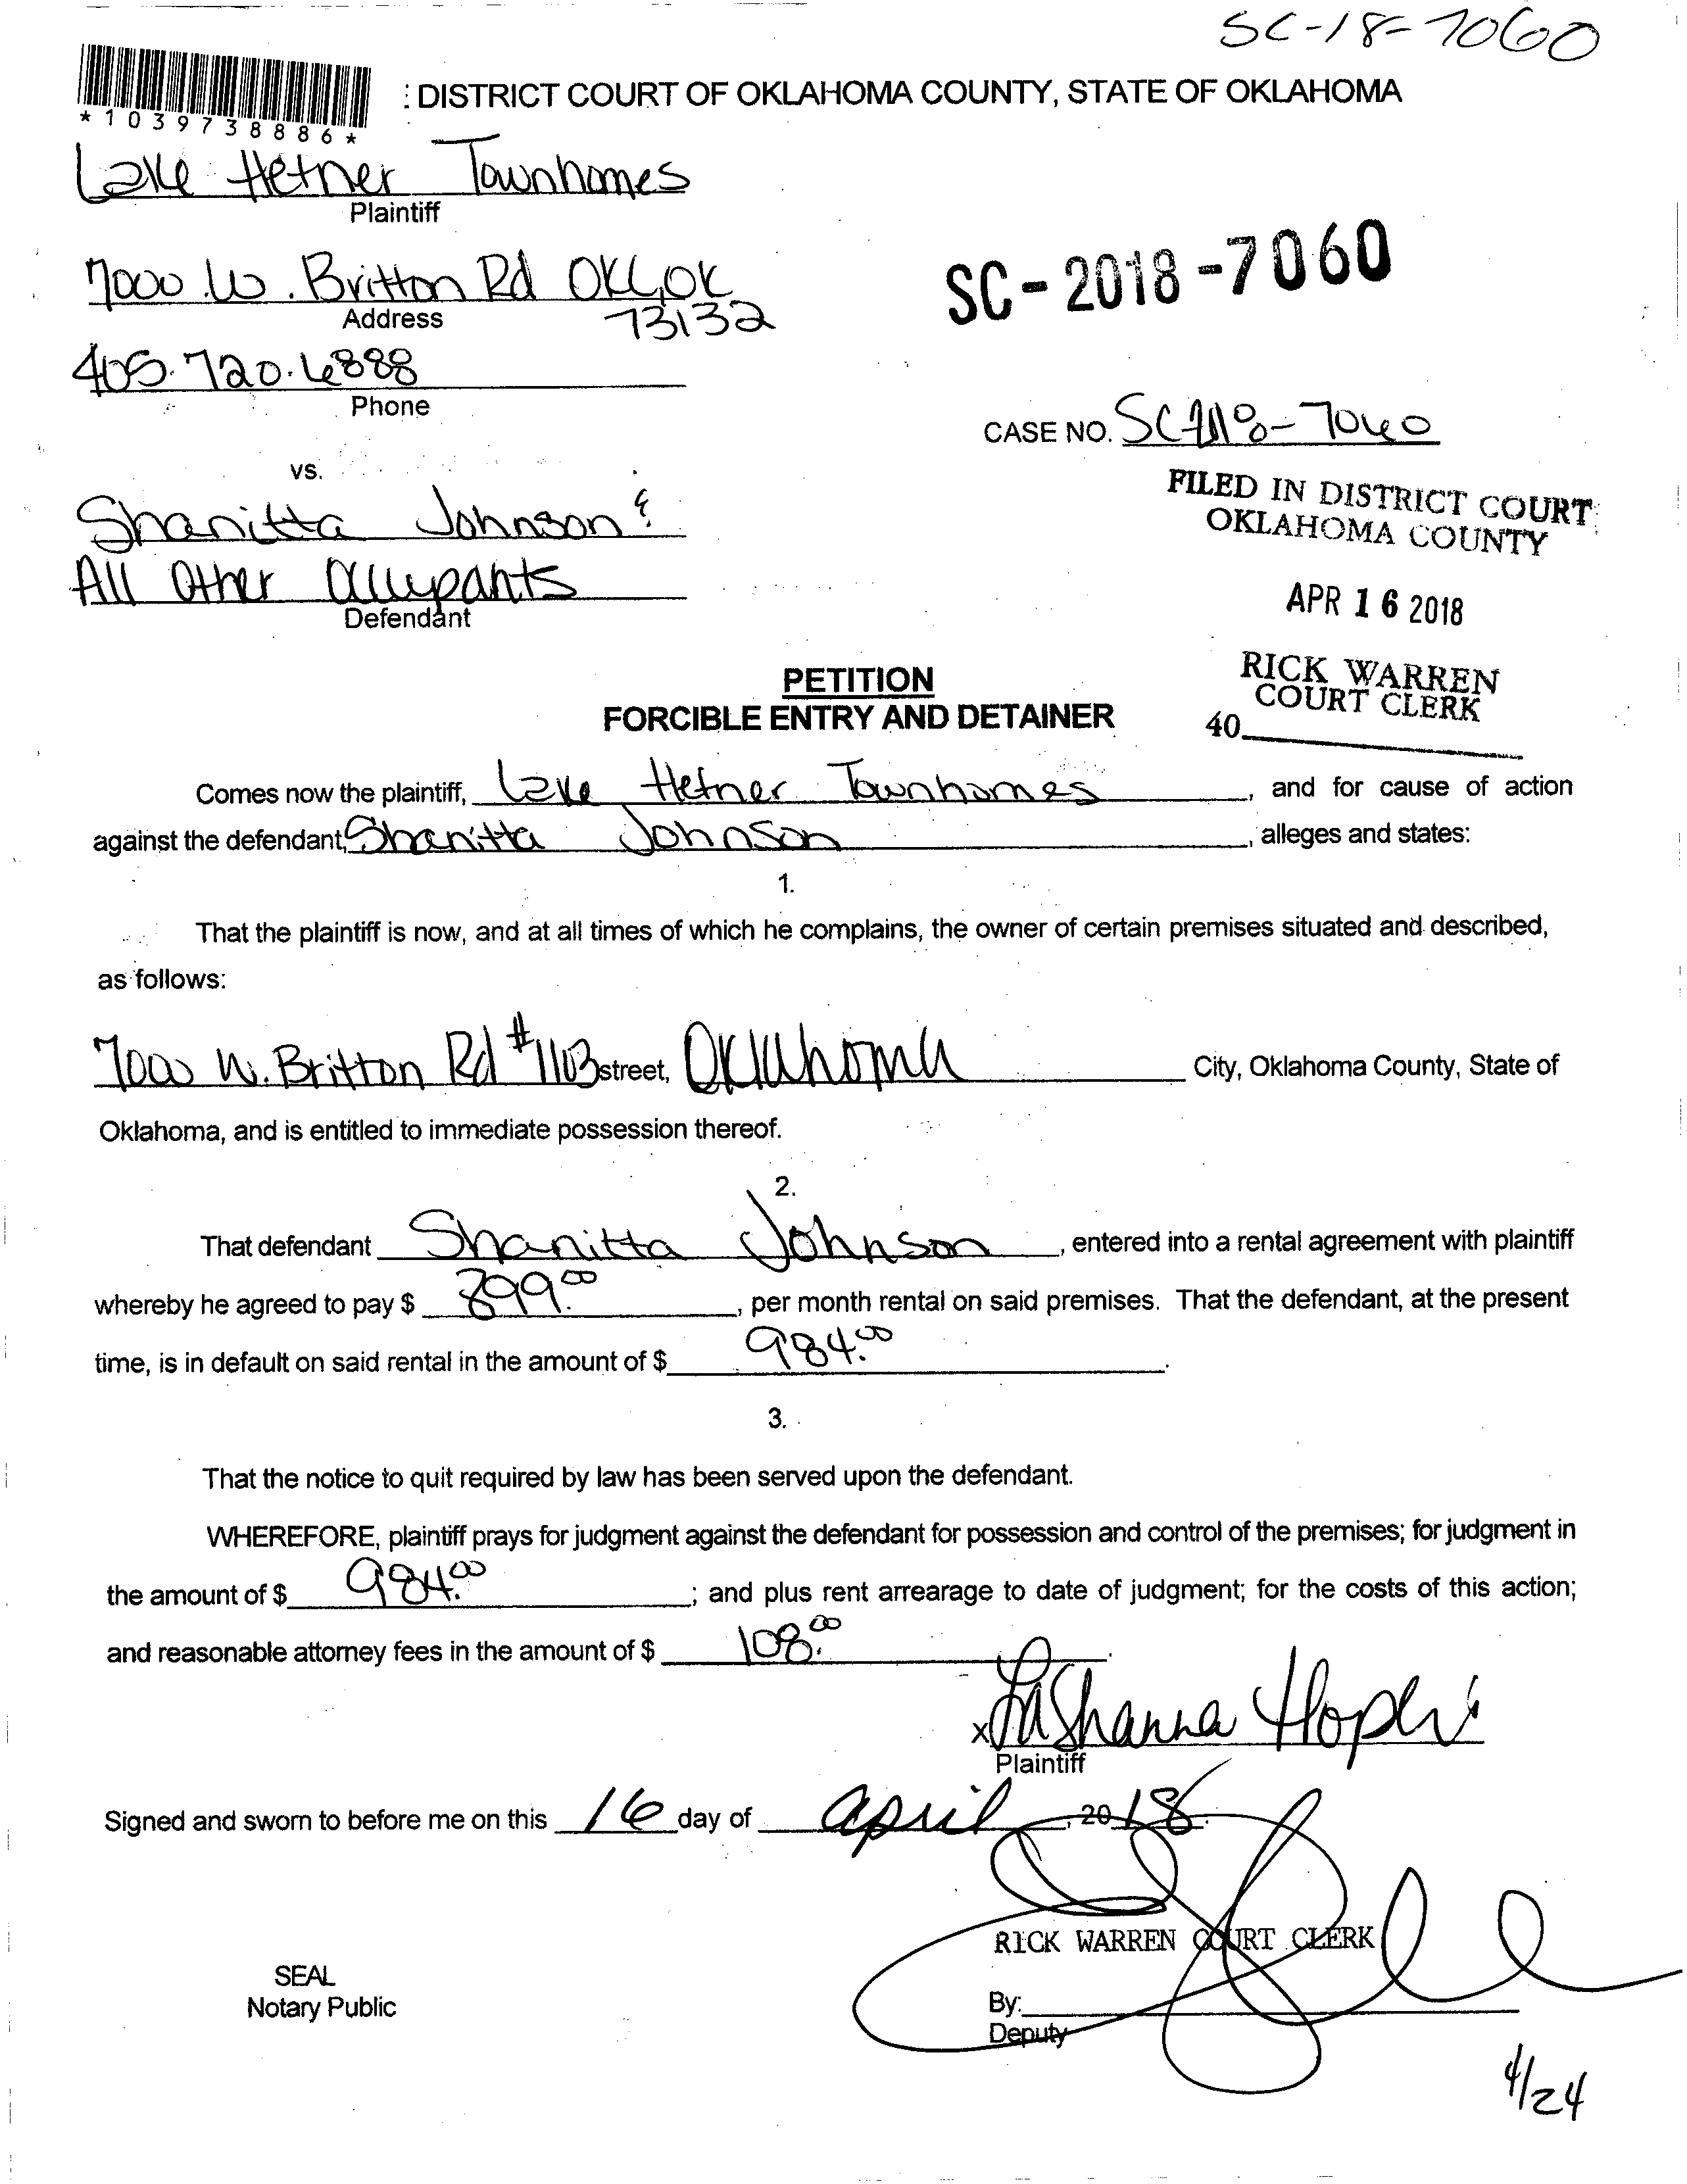 SC-18-7060
: DISTRICT COURT OF OKLAHOMA COUNTY, STATE OF OKLAHOMA
*1039738886*
Lake Hefner Townhomes
Plaintiff
7000 W. Britton Rd OKC, OK
Address
73132
SC-2018-7060
405.720.6888
Phone
CASE NO. SC-18-7060
vs.
FILED IN DISTRICT COURT
OKLAHOMA COUNTY
Shanitta Johnson &
All Other Occupants
Defendant
APR 16 2018
RICK WARREN
COURT CLERK
40
PETITION
FORCIBLE ENTRY AND DETAINER
Comes now the plaintiff, Lake Hefner Townhomes, and for cause of action
against the defendant, Shanitta Johnson, alleges and states:
1.
That the plaintiff is now, and at all times of which he complains, the owner of certain premises situated and described,
as follows:
7000 W. Britton Rd #1103 street, Oklahoma City, Oklahoma County, State of
Oklahoma, and is entitled to immediate possession thereof.
2.
That defendant Shanitta Johnson, entered into a rental agreement with plaintiff
whereby he agreed to pay $ 899.00, per month rental on said premises. That the defendant, at the present
time, is in default on said rental in the amount of $ 984.00.
3.
That the notice to quit required by law has been served upon the defendant.
WHEREFORE, plaintiff prays for judgment against the defendant for possession and control of the premises; for judgment in
the amount of $ 984.00; and plus rent arrearage to date of judgment; for the costs of this action;
and reasonable attorney fees in the amount of $ 108.00.
x LaShanna Hopkins
Plaintiff
Signed and sworn to before me on this 16 day of april, 2018.
RICK WARREN COURT CLERK
SEAL
Notary Public
By:
Deputy
4/24